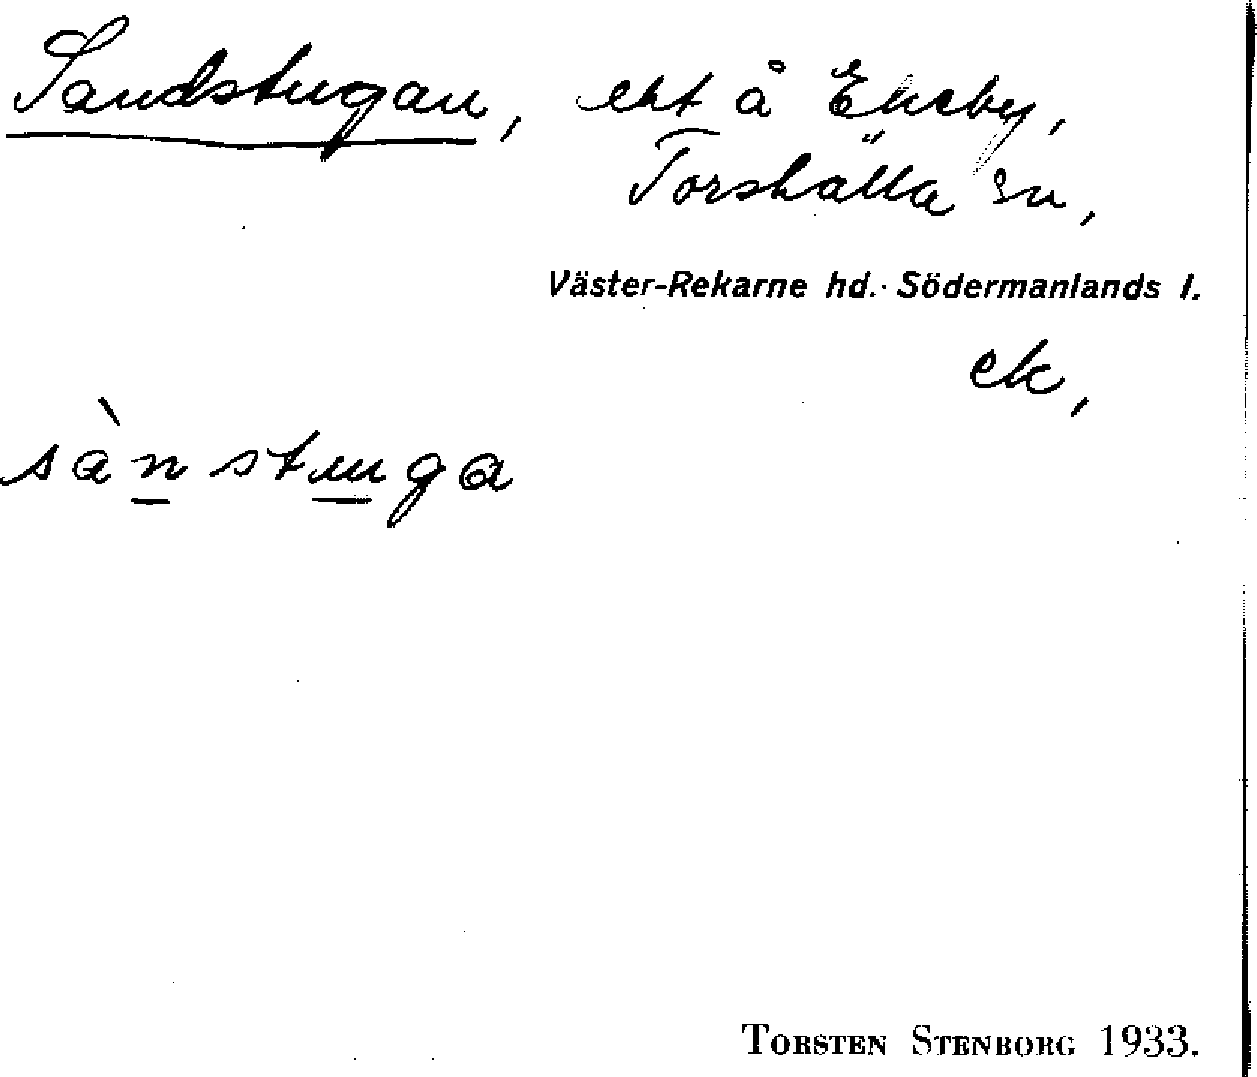 Sandstugan, ekt å Ekeby,
Torshälla sn,
Väster-Rekarne hd. Södermanlands l.
ek,
sànstuga
TORSTEN STENBORG 1933.